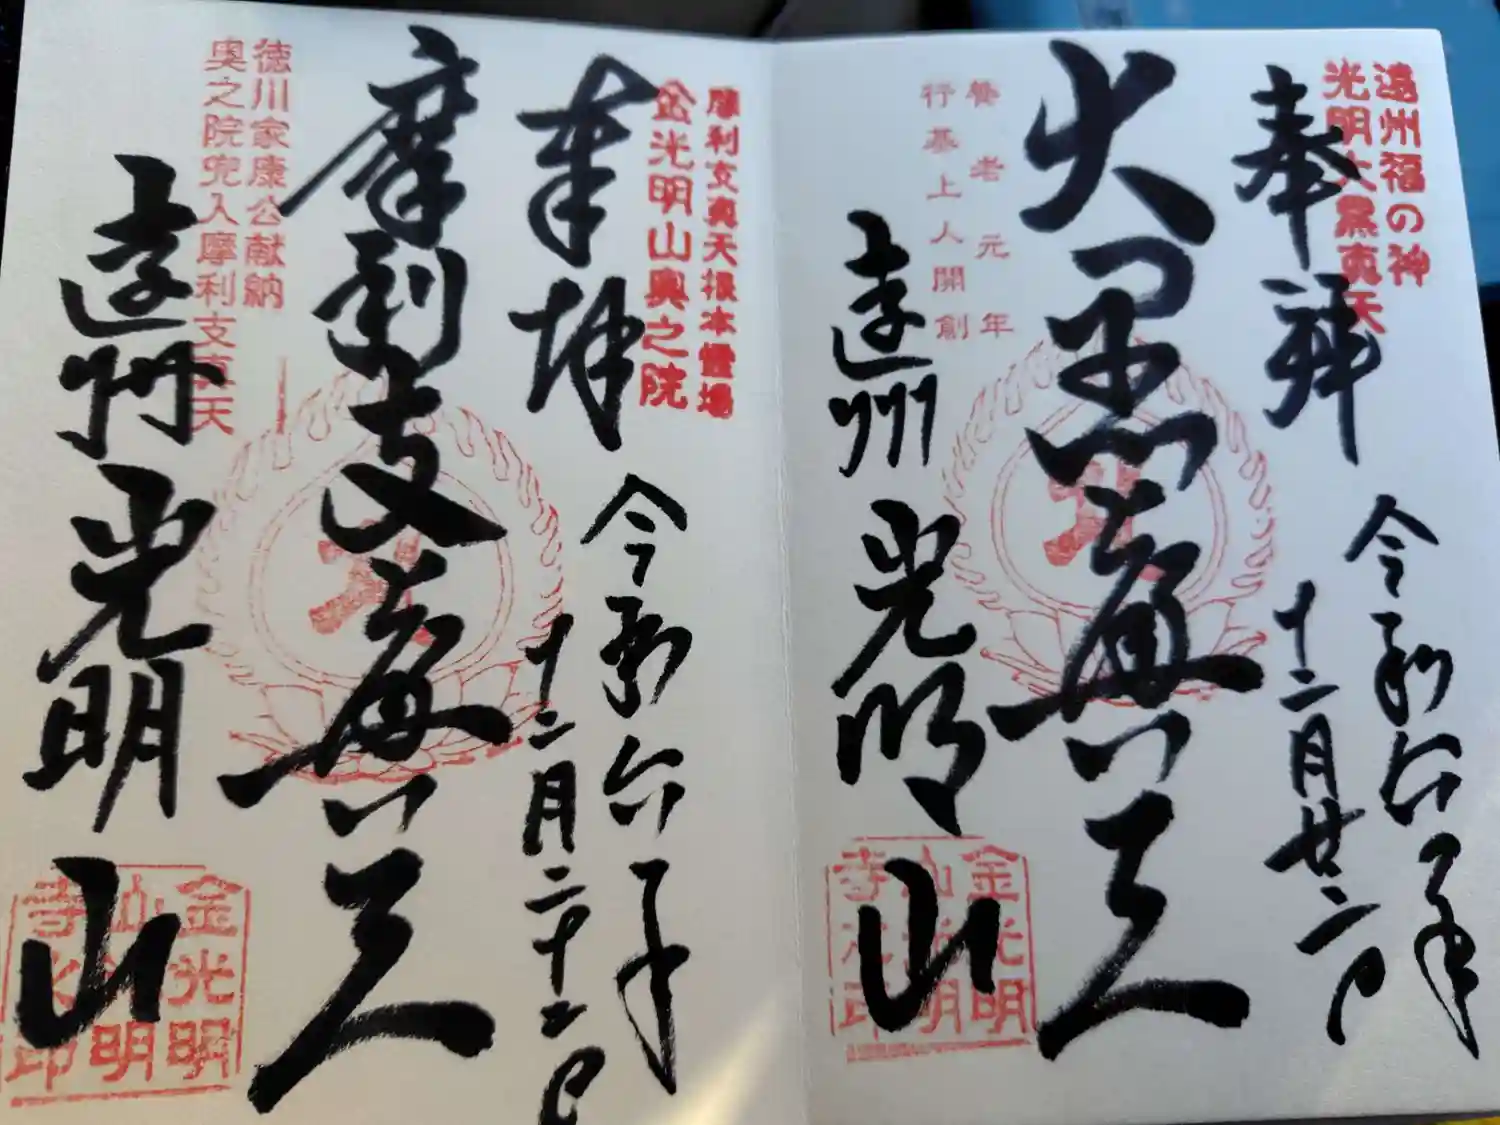 遠州福の神
光明大黒真天
奉拝
令和六年
十二月廿二日
大黒真天
養老元年
行基上人開創
遠州
光明山
金光明
山光明
寺之印
摩利支真天根本霊場
金光明山奥之院
奉拝
令和六年
十二月二十二日
摩利支真天
徳川家康公献納
奥之院兜入摩利支真天
遠州
光明山
金光明
山光明
寺之印